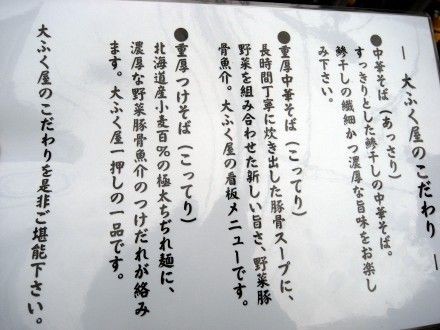 ― 大ふく屋のこだわり ―
●中華そば（あっさり）
すっきりとした鯵干しの中華そば。
鯵干しの繊細かつ濃厚な旨味をお楽し
み下さい。
●重厚中華そば（こってり）
長時間丁寧に炊き出した豚骨スープに、
野菜を組み合わせた新しい旨さ、野菜豚
骨魚介。大ふく屋の看板メニューです。
●重厚つけそば（こってり）
北海道産小麦百%の極太ちぢれ麺に、
濃厚な野菜豚骨魚介のつけだれが絡み
ます。大ふく屋一押しの一品です。
大ふく屋のこだわりを是非ご堪能下さい。